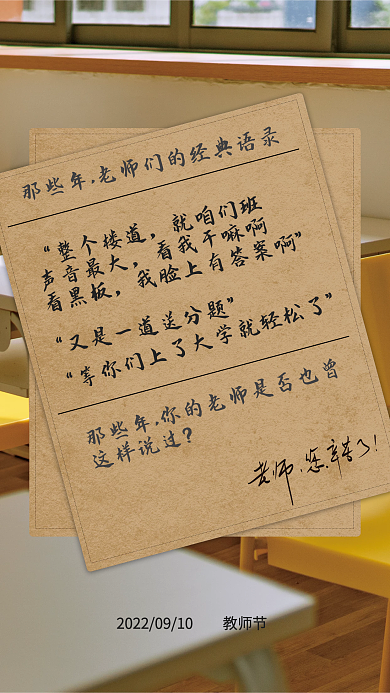 那些年,老师们的经典语录
“整个楼道，就咱们班
声音最大，看我干嘛啊
看黑板，我脸上有答案啊”
“又是一道送分题”
“等你们上了大学就轻松了”
那些年,你的老师是否也曾
这样说过?
老师,您辛苦了!
2022/09/10 教师节